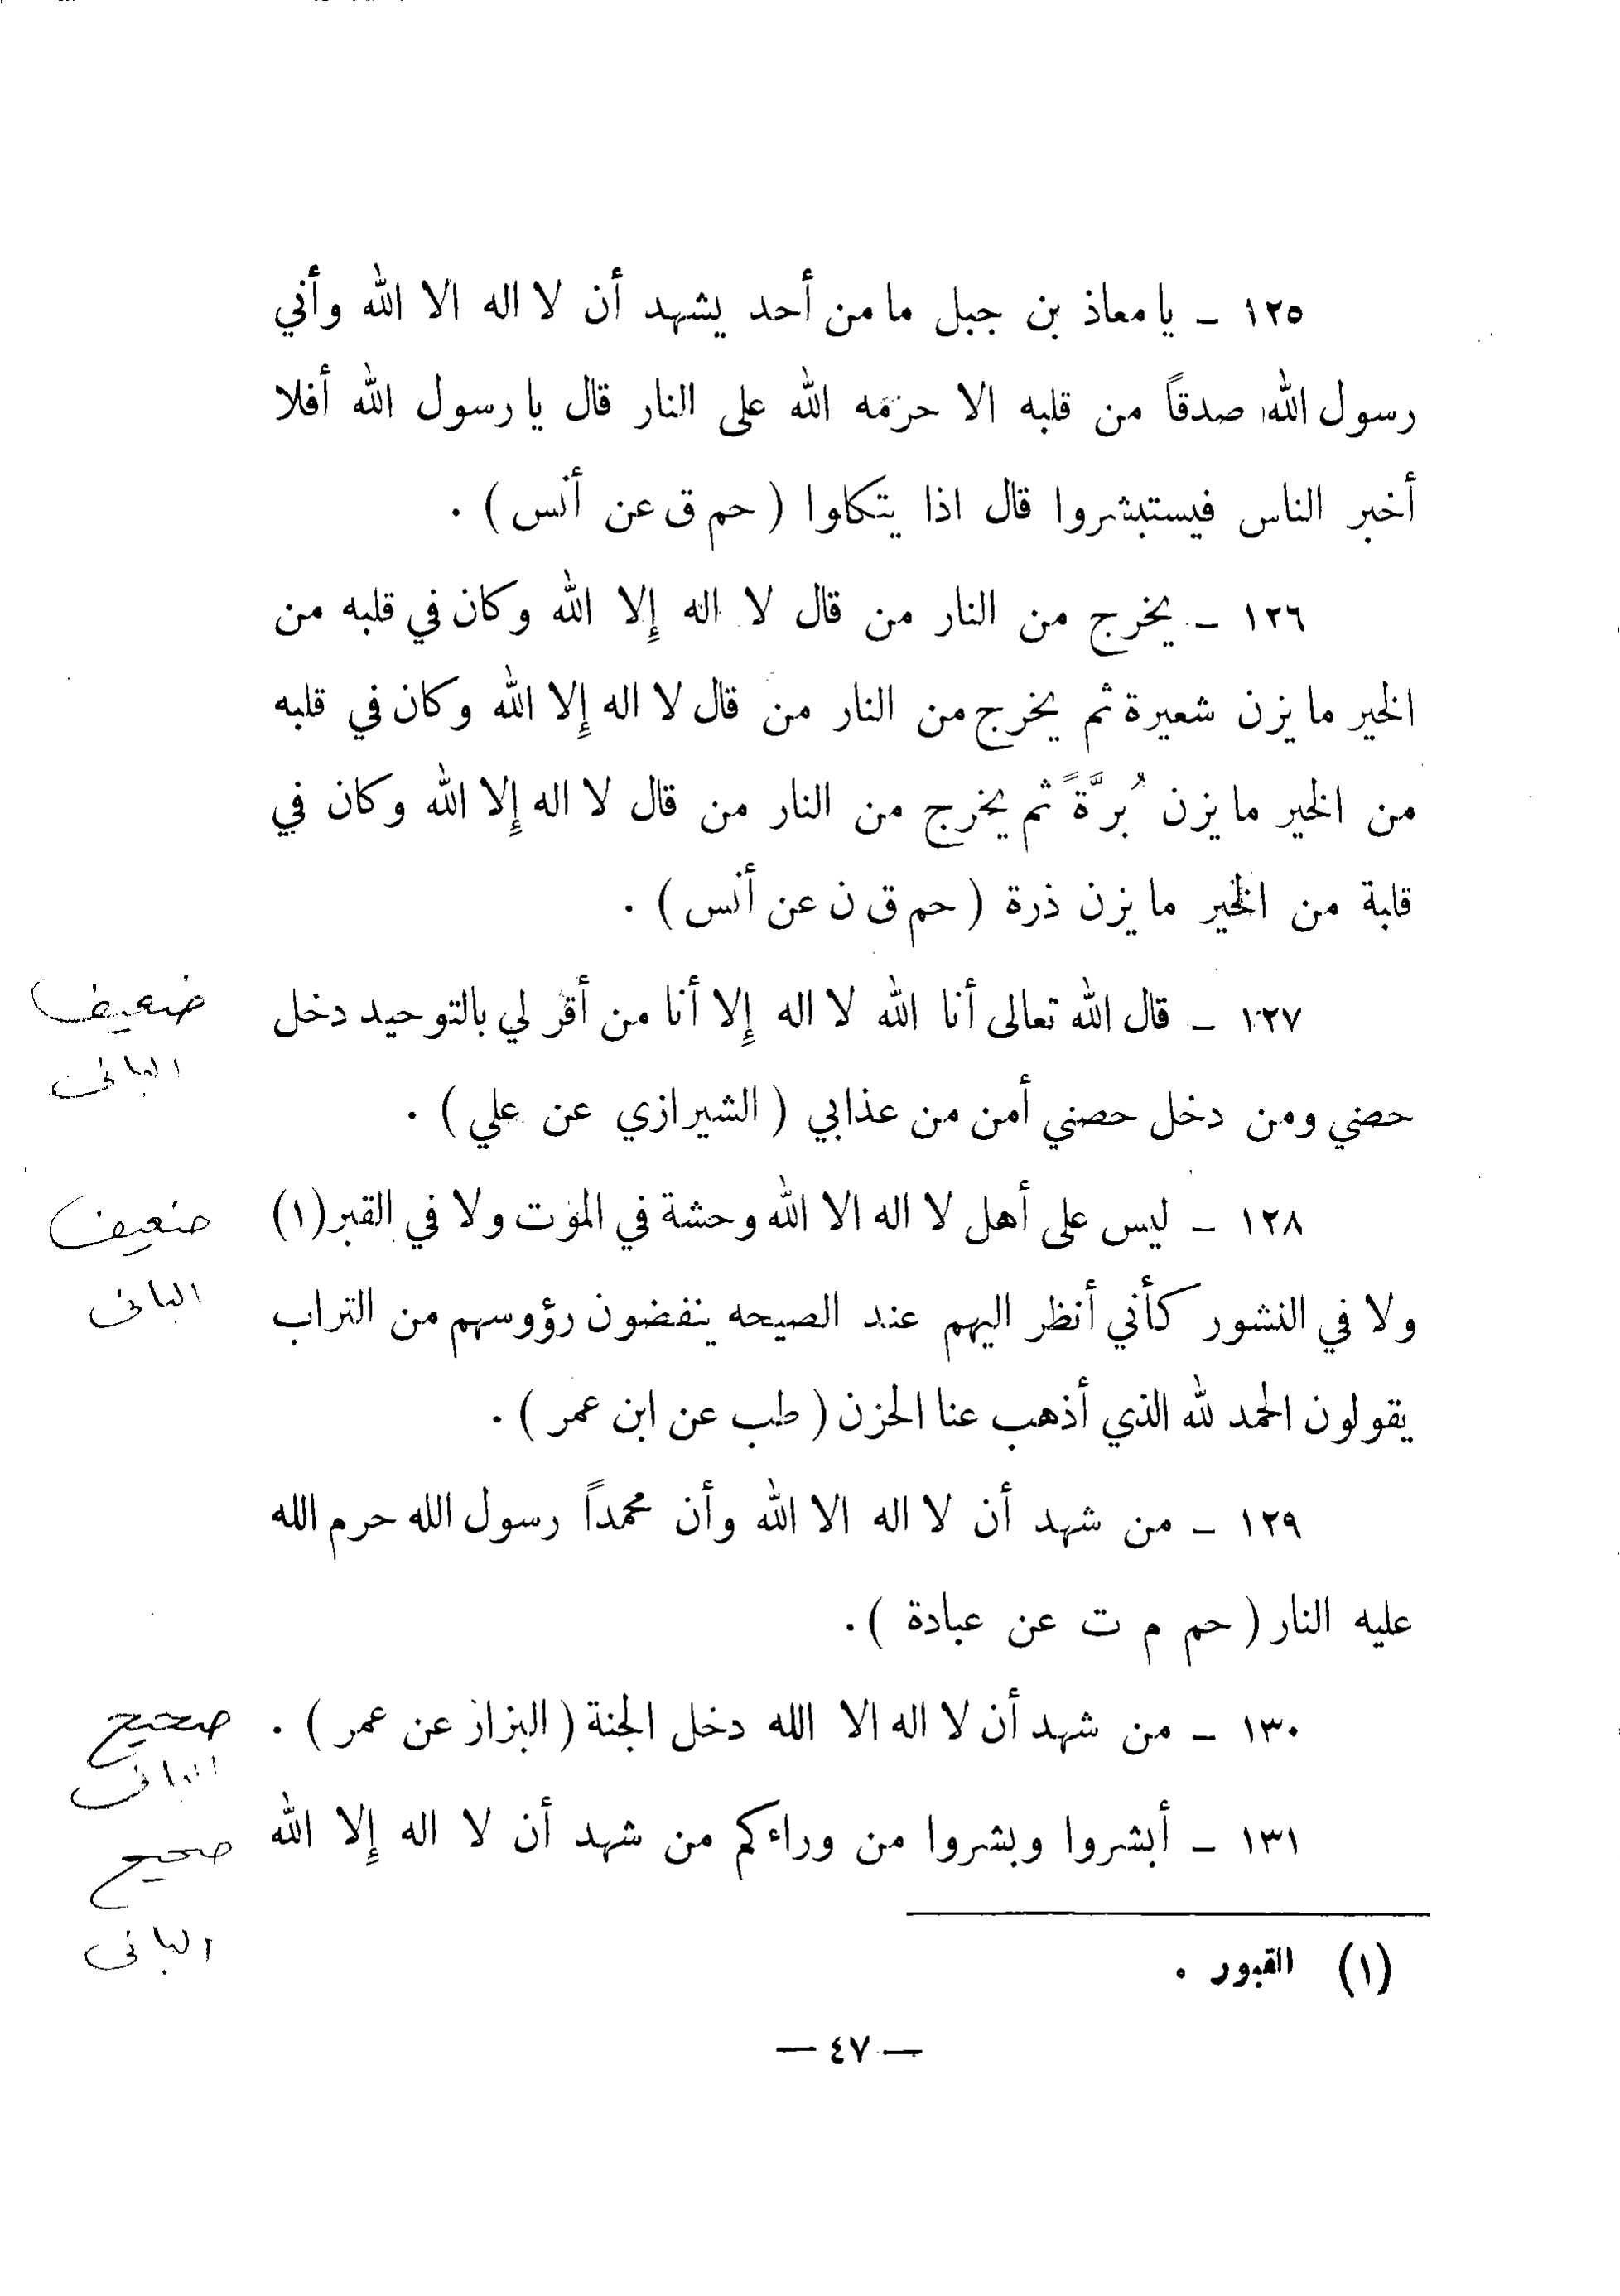 ١٢٥ ـ يا معاذ بن جبل ما من أحد يشهد أن لا اله الا الله وأني
رسول الله صدقاً من قلبه الا حرمه الله على النار قال يا رسول الله أفلا
أخبر الناس فيستبشروا قال اذا يتكلوا ( حم ق عن أنس ) .
١٢٦ ـ يخرج من النار من قال لا اله إلا الله وكان في قلبه من
الخير ما يزن شعيرة ثم يخرج من النار من قال لا اله إلا الله وكان في قلبه
من الخير ما يزن بُرَّةً ثم يخرج من النار من قال لا اله إلا الله وكان في
قلبة من الخير ما يزن ذرة ( حم ق ن عن أنس ) .
١٢٧ ـ قال الله تعالى أنا الله لا اله إلا أنا من أقر لي بالتوحيد دخل
ضعيف
حصني ومن دخل حصني أمن من عذابي ( الشيرازي عن علي ) .
البانى
١٢٨ ـ ليس على أهل لا اله الا الله وحشة في الموت ولا في القبر(١)
ضعيف
ولا في النشور كأني أنظر اليهم عند الصيحه ينفضون رؤوسهم من التراب
البانى
يقولون الحمد لله الذي أذهب عنا الحزن ( طب عن ابن عمر ) .
١٢٩ ـ من شهد أن لا اله الا الله وأن محمداً رسول الله حرم الله
عليه النار ( حم م ت عن عبادة ) .
١٣٠ ـ من شهد أن لا اله الا الله دخل الجنة ( البزاز عن عمر ) .
صحيح
البانى
١٣١ ـ أبشروا وبشروا من وراءكم من شهد أن لا اله إلا الله
صحيح
البانى
(١) القبور .
— ٤٧ —